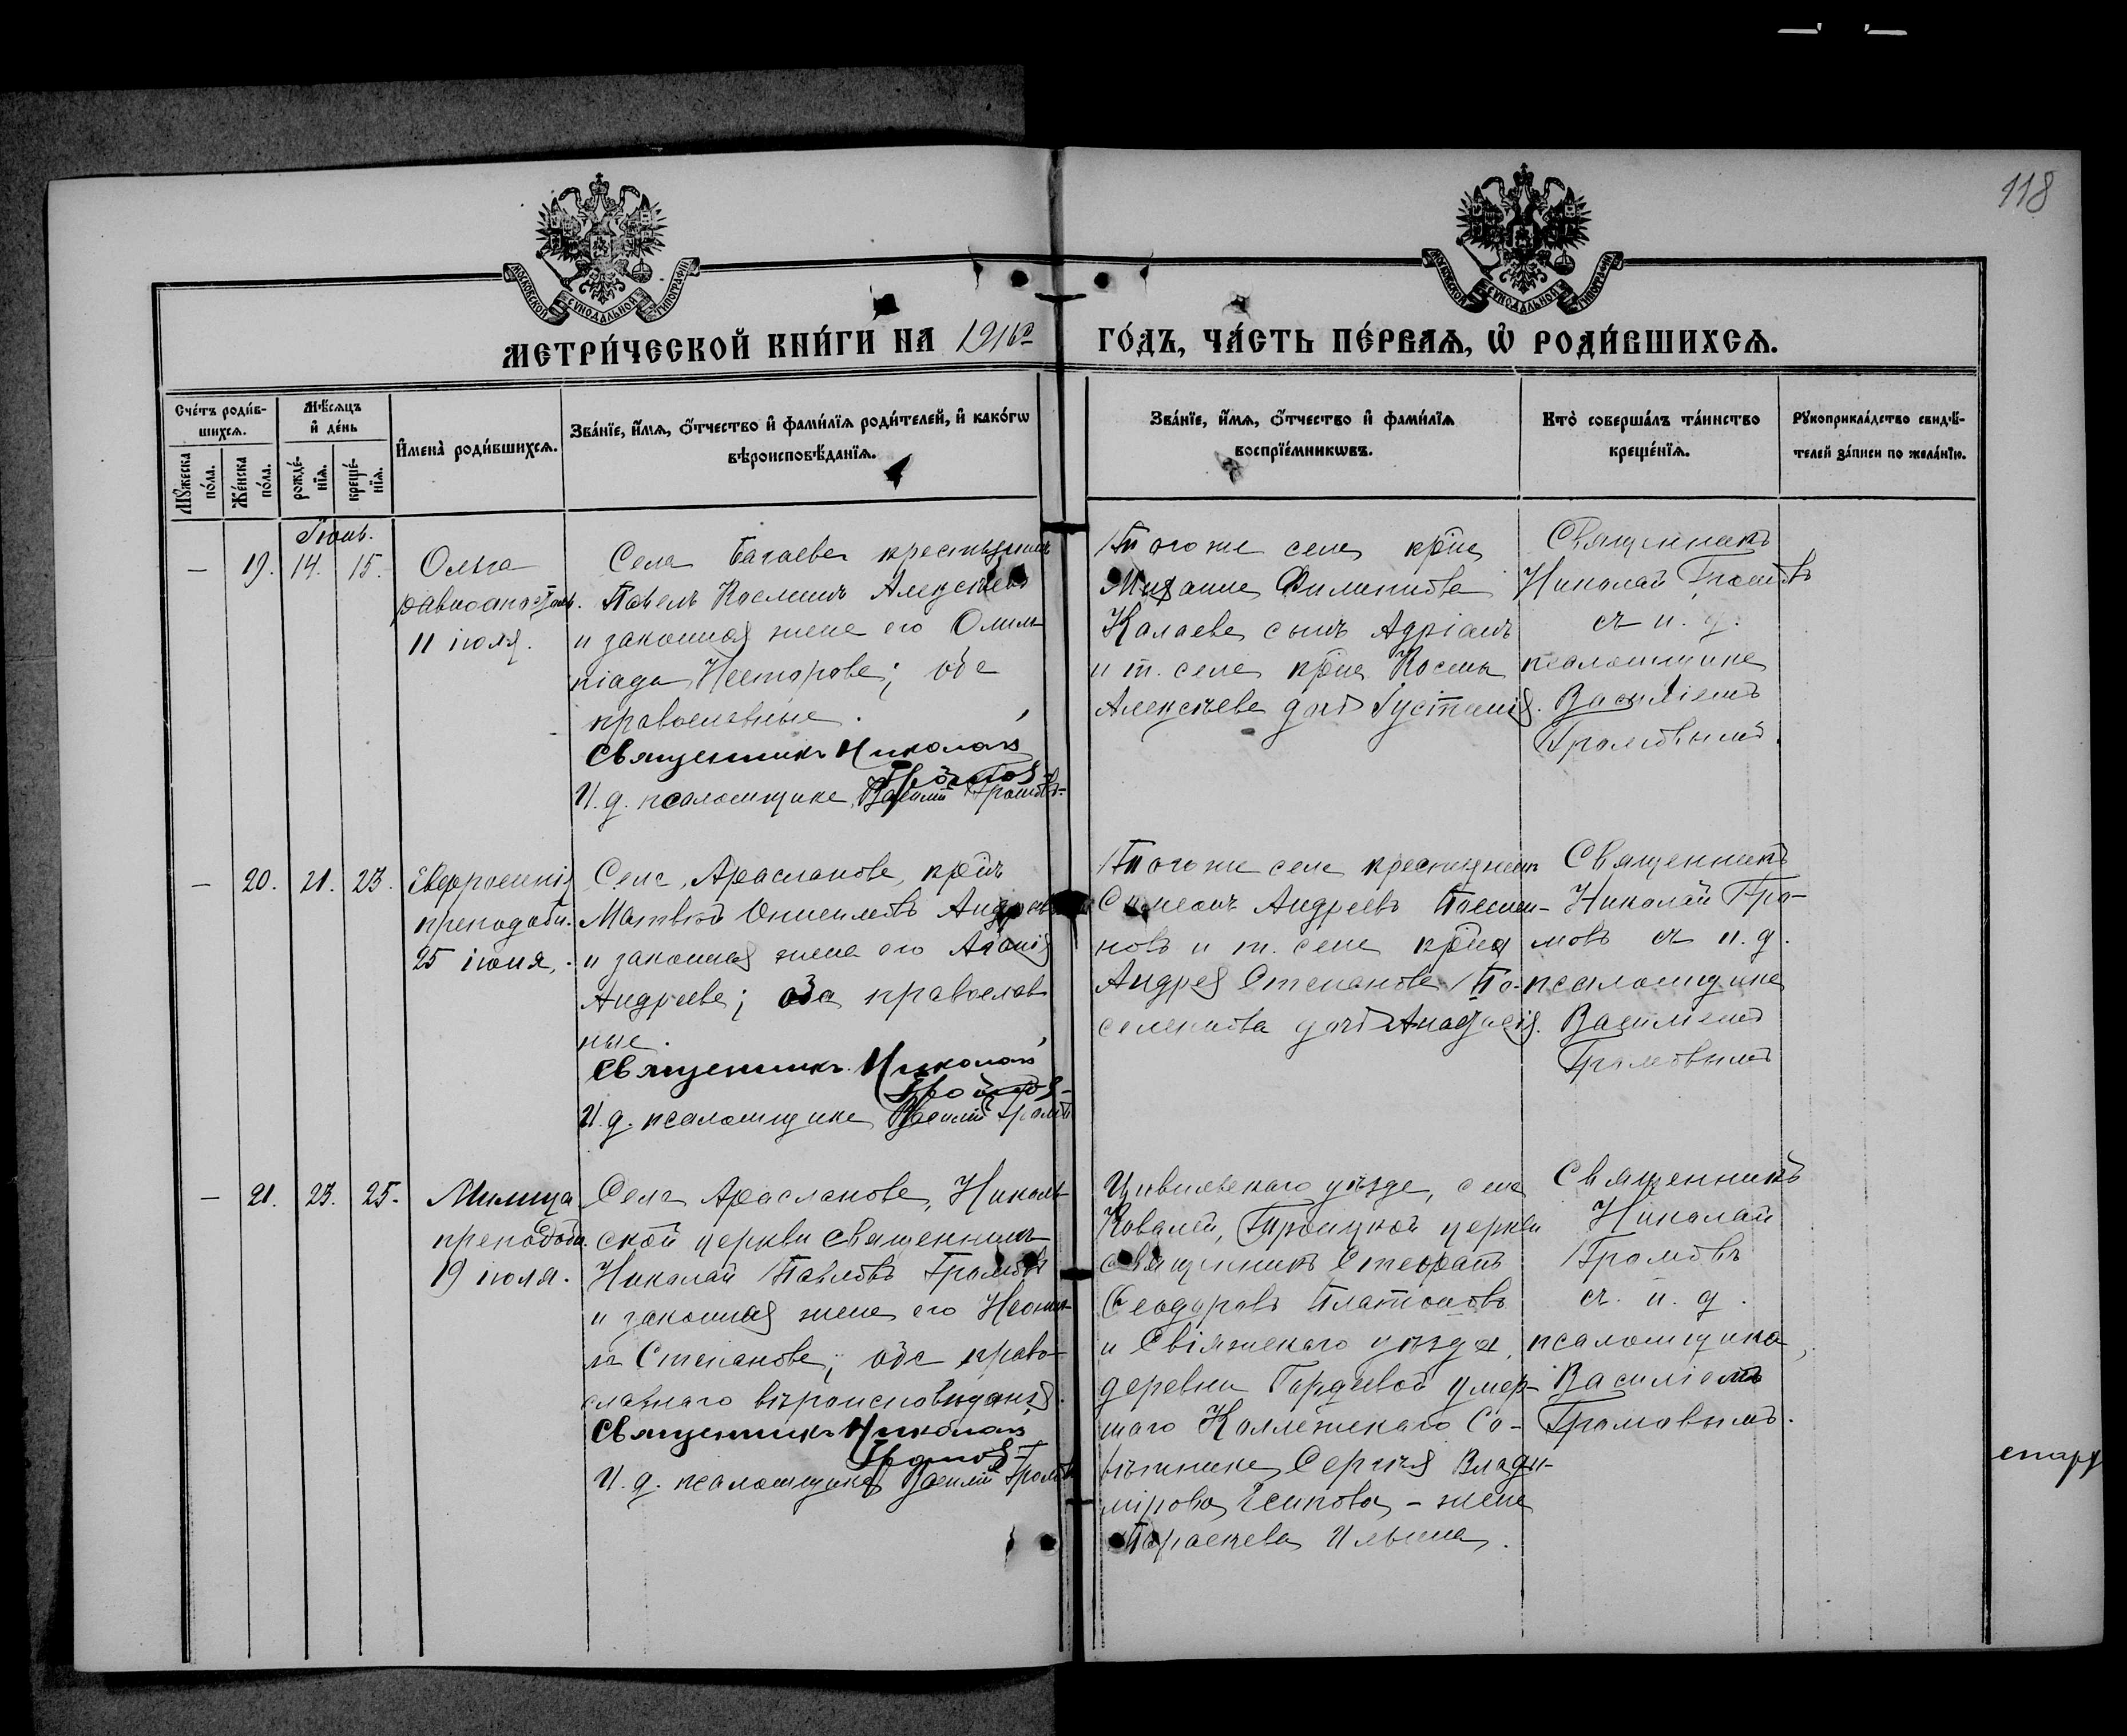 118
МОСКОВСКОЙ СѴНОДАЛЬНОЙ ТИПОГРАФІИ
МОСКОВСКОЙ СѴНОДАЛЬНОЙ ТИПОГРАФІИ
МЕТРИ́ЧЕСКОЙ КНИ́ГИ НА 1916й ГО́ДЪ, ЧА́СТЬ ПЕ́РВАѦ, Ѡ҆ РОДИ́ВШИХСѦ.
Сче́тъ роди́в-
шихсѧ.
Мꙋ́жеска
по́ла.
Же́нска
по́ла.
Мѣ́сѧцъ
и҆ де́нь
рожде́-
нїѧ.
креще́-
нїѧ.
И҆мена̀ роди́вшихсѧ.
Зва́нїе, и҆́мѧ, ѻ҆́тчество и҆ фами́лїѧ роди́телей, и҆ како́гѡ
вѣроисповѣ́данїѧ.
Зва́нїе, и҆́мѧ, ѻ҆́тчество и҆ фами́лїѧ
воспрїе́мникѡвъ.
Кто̀ соверша́лъ та́инство
креще́нїѧ.
Рꙋкоприкла́дство свидѣ́-
телей за́писи по жела́нїю.
Іюнь.
— 19. 14. 15.
Ольга
равноапостол.
11 іюля.
Села Багаева крестьянинъ
Павелъ Косминъ Алексѣевъ
и законная жена его Олим-
піада Несторова; оба
православные.
Священникъ Николай
Громовъ
И. д. псаломщика Василій Громовъ
Тогоже села кр–на
Михаила Филиппова
Калаева сынъ Адріанъ
и т. села кр–на Космы
Алексѣева дочь Іустинія.
Священникъ
Николай Громовъ
съ и. д.
псаломщика
Василіемъ
Громовымъ.
— 20. 21. 23.
Евфросинія
преподобн.
25 іюня.
Села Арасланова, кр–нъ
Матвѣй Онисимовъ Андреевъ
и законная жена его Агаѳія
Андреева; оба православ
ные.
Священникъ Николай
Громовъ
И. д. псаломщика Василій Громовъ
Тогоже села крестьянинъ
Симеонъ Андреевъ
новъ и т. села кр–на
Андрея Степанова По-
дочь Анастасія.
Священникъ
Николай Гро-
мовъ съ и. д.
псаломщика
Василіемъ
Громовымъ
— 21. 23. 25.
Милица
преподобн.
19 іюля.
Села Арасланова, Николь-
ской церкви священникъ
Николай Павловъ Громовъ
и законная жена его Неони-
ла Степанова; оба право-
славнаго вѣроисповѣданія.
Священникъ Николай
Громовъ
И. д. псаломщика Василій Громовъ
Цивильскаго уѣзда, села
Ковалей, Троицкой церкви
священникъ Стефанъ
Ѳеодоровъ Платоновъ
и Свіяжскаго уѣзда,
деревни Гордѣевой умер-
шаго Коллежскаго Со-
вѣтника Сергѣя Влади-
мірова Есипова, – жена
Параскева Ильина.
Священникъ
Николай
Громовъ
съ и. д.
псаломщика,
Василіемъ
Громовымъ.